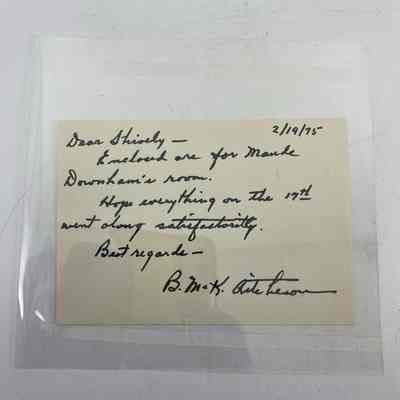 2/19/75
Dear Shively —
Enclosed are for Maude
Downham's room.
Hope everything on the 17th
went along satisfactorily.
Best regards —
B. McK. Aitcheson